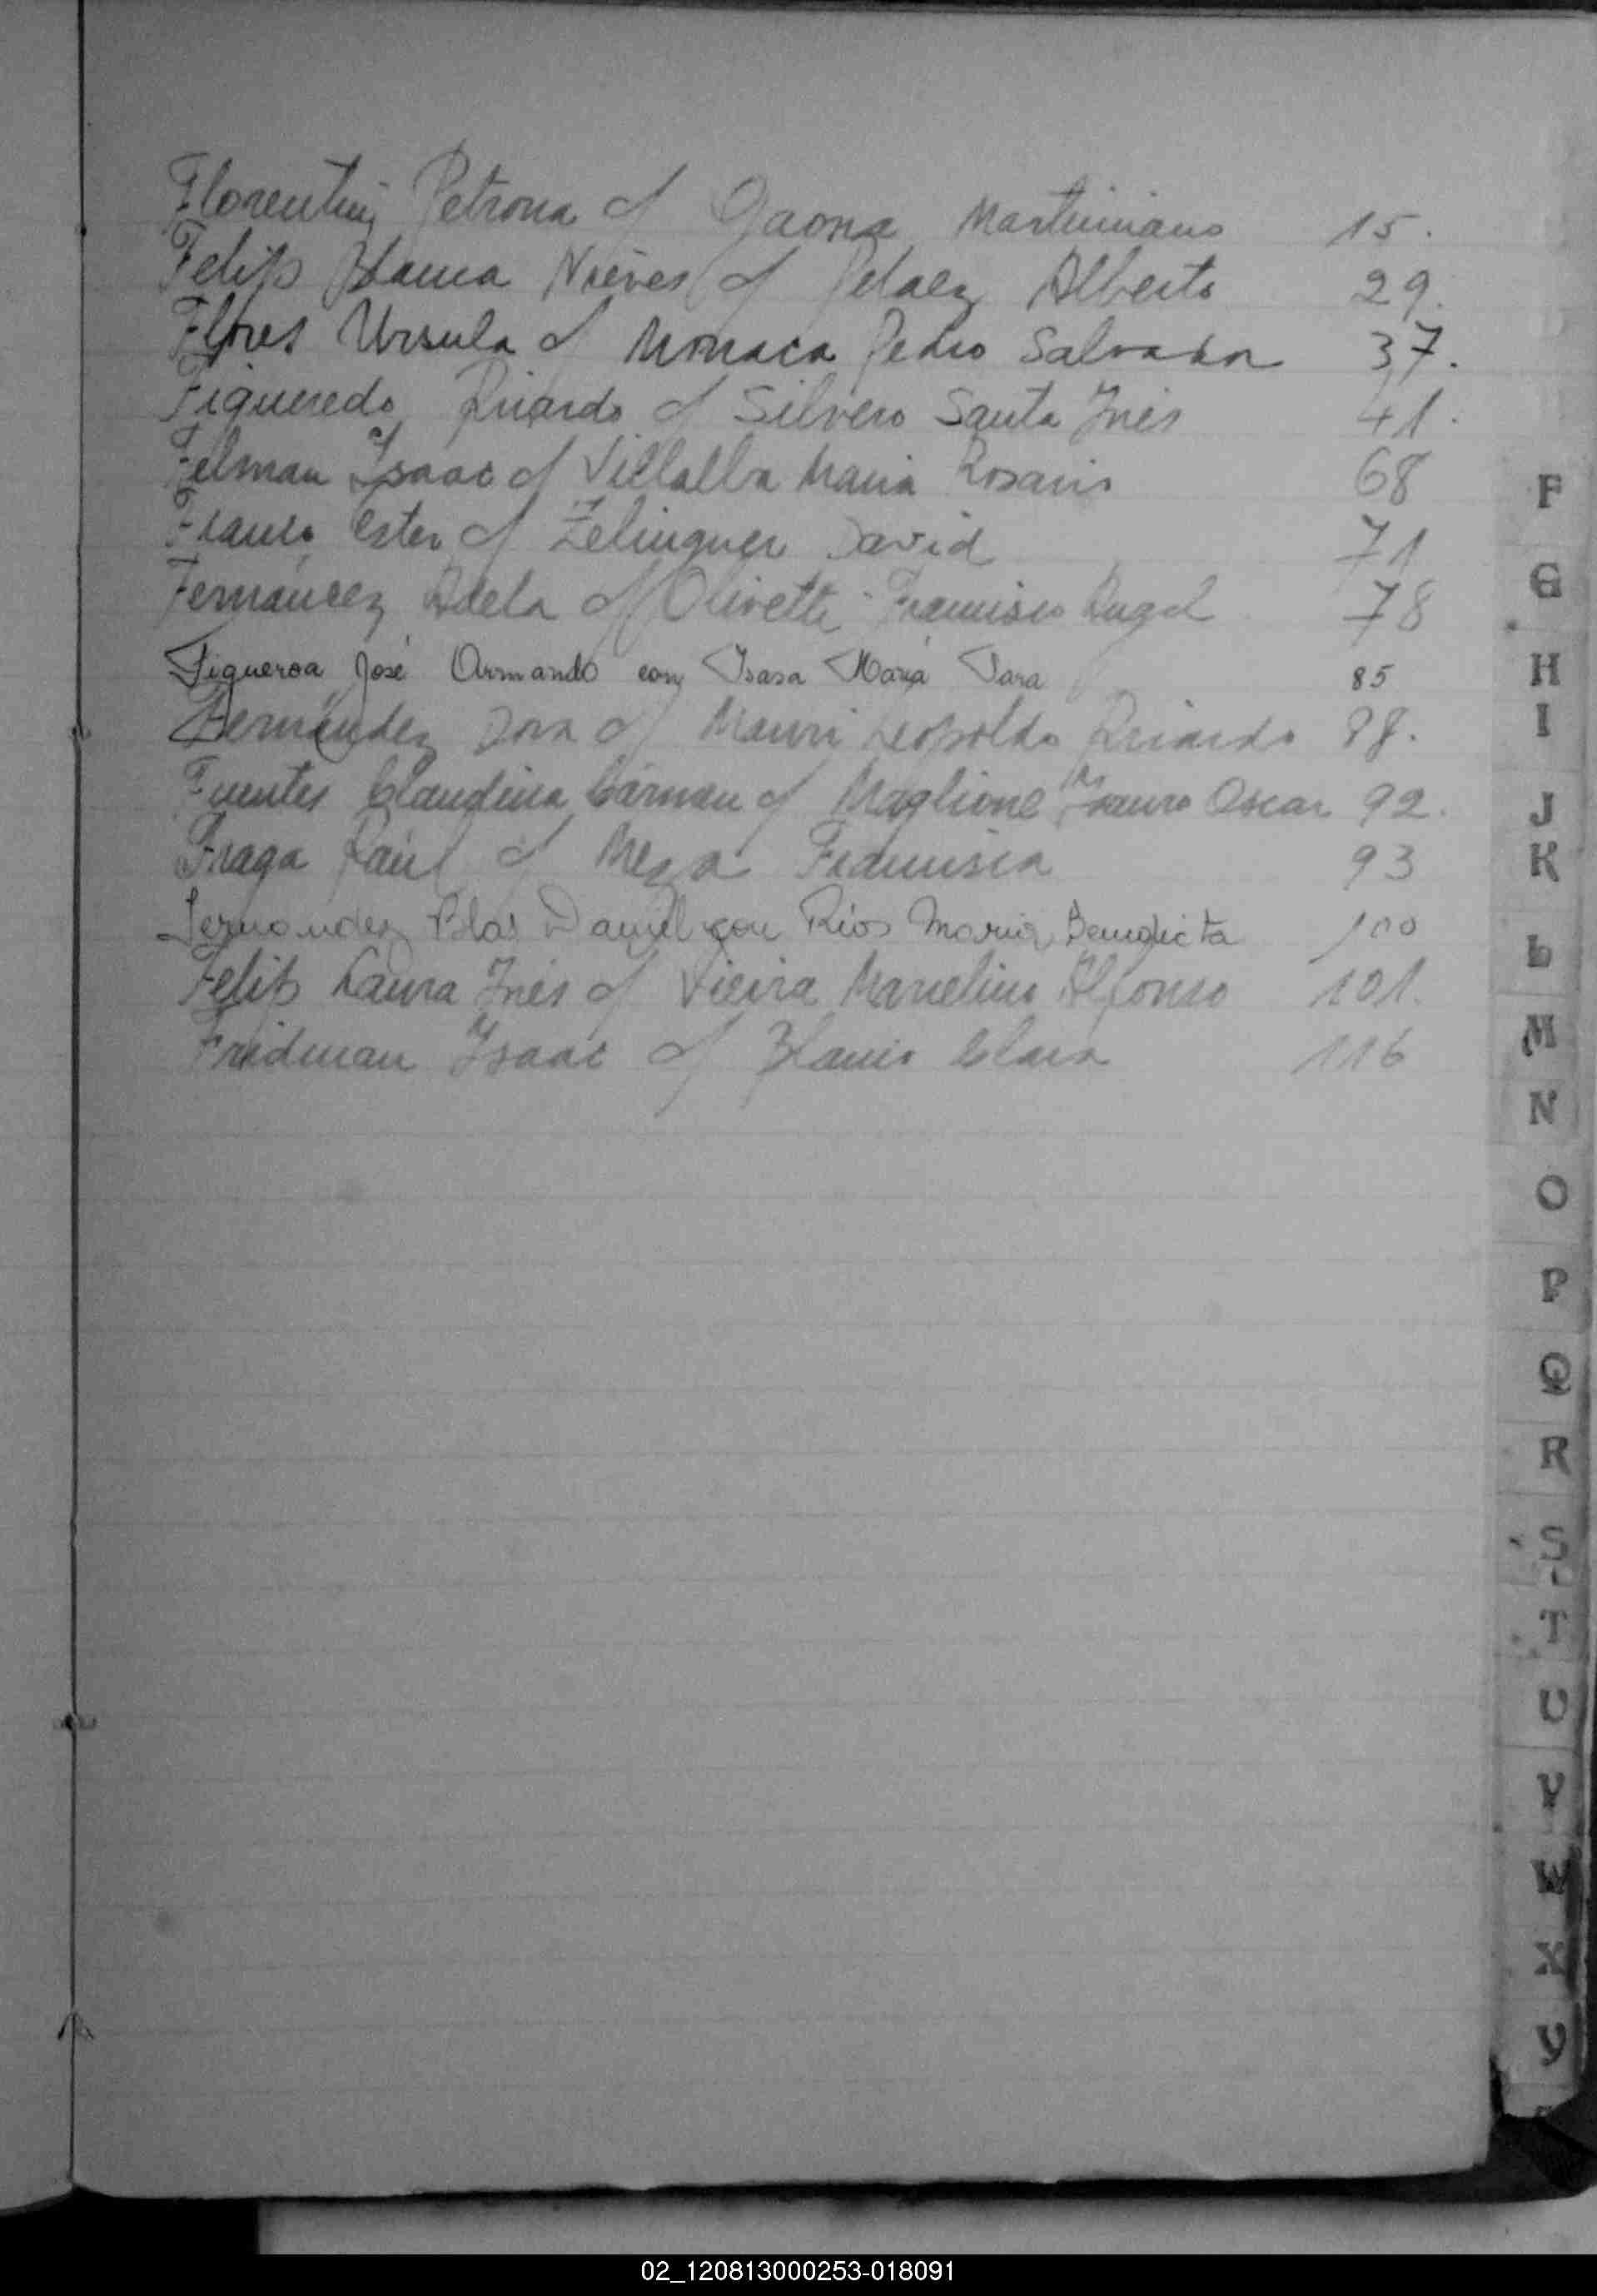 Florentin Petrona c/ Gaona Martiniano 15.
Felip Blanca Nieves c/ Pelaez Alberto 29.
Flores Ursula c/ Monaca Pedro Salvador 37.
Figueredo Ricardo c/ Silvero Santa Inés 41.
Felman Isaac c/ Villalba Maria Rosario 68
Franco Ester c/ Zelinguer David 71
Fernandez Adela c/ Olivetti Francisco Angel 78
Figueroa José Armando con Isasa María Sara 85
Fernandez Dora c/ Mauri Leopoldo Ricardo 88.
Fuentes Claudina Cármen c/ Maglione Oscar 92.
Fraga Raúl c/ Meza Francisca 93
Fernandez Blas Daniel con Rios Maria Benedicta 100
Felip Laura Inés c/ Vieira Marcelino Alfonso 101.
Fridman Isaac c/ Clara 116
F
G
H
I
J
K
L
M
N
O
P
Q
R
S
T
U
V
W
X
Y
02_120813000253-018091